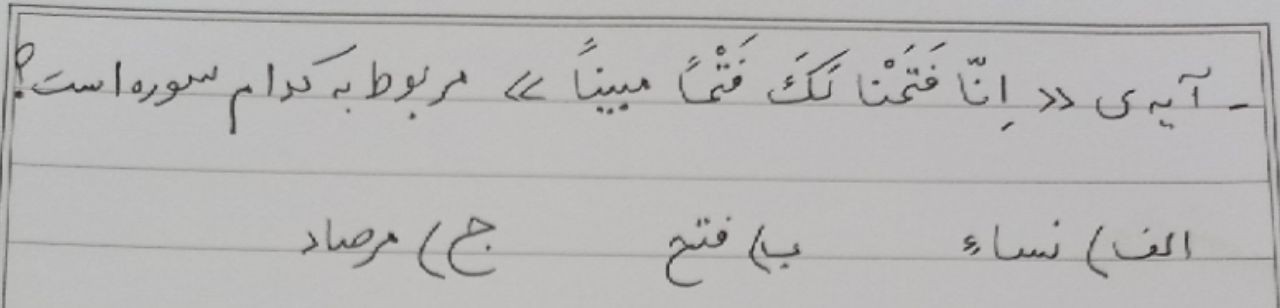 - آیه ی « اِنّا فَتَحْنا لَکَ فَتْحاً مبیناً » مربوط به کدام سوره است؟
الف) نساء ب) فتح ج) مرصاد